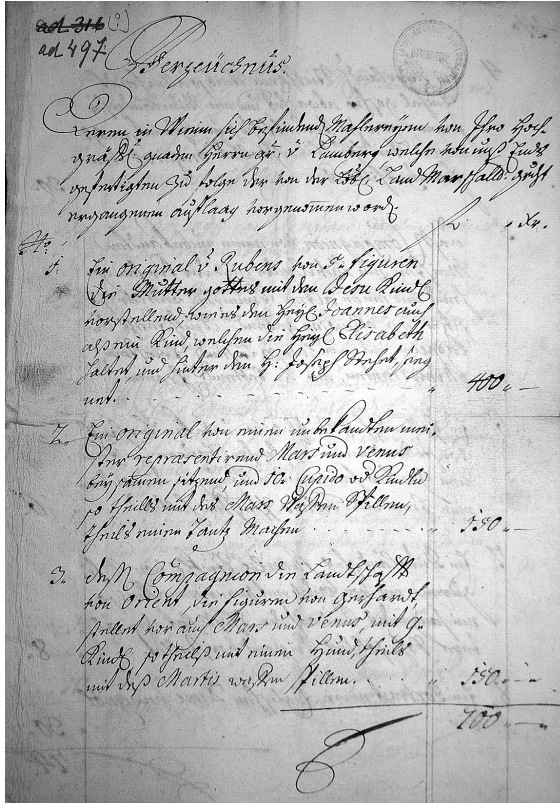 ad 316 (?)
ad 497
Verzeüchnus.
Deren in Wienn sich befindend Mahlereyen von Ihro Hoch-
gräffl: gnaden Herrn gr: v Lamberg welche von unß Ends
gefertigten zu folge der von der Löbl. Land Marschall: gricht
ergangenen aufflaag vorgenomen word.
No. f. Xr.
1. Ein original v Rubens von 5 figuren
die Mutter gottes mit dem Jesu Kindl
vorstellend, wie es den Heyl Joannes auch
alß ein Kind, welchen die Heyl Elisabeth
haltet und hinter dem H: Joseph stehet, seg
net. 400 „ —
2. Ein original von einem unbekandten mei-
ster repraesentirend Mars und Venus
beysamen sitzend und 10 Cupido od Kindln
so theills mit des Mars Waffen spillen,
theils einen Tantz machen 150 „ —
3. dessen Compagnon die Landtschafft
von Orient, die figuren von Gerhardt,
stellet vor auch Mars und Venus mit 9
Kindl, so theilß mit einem Hund, theils
mit deß Martis waffen spillen. 150 „ —
700 „ —